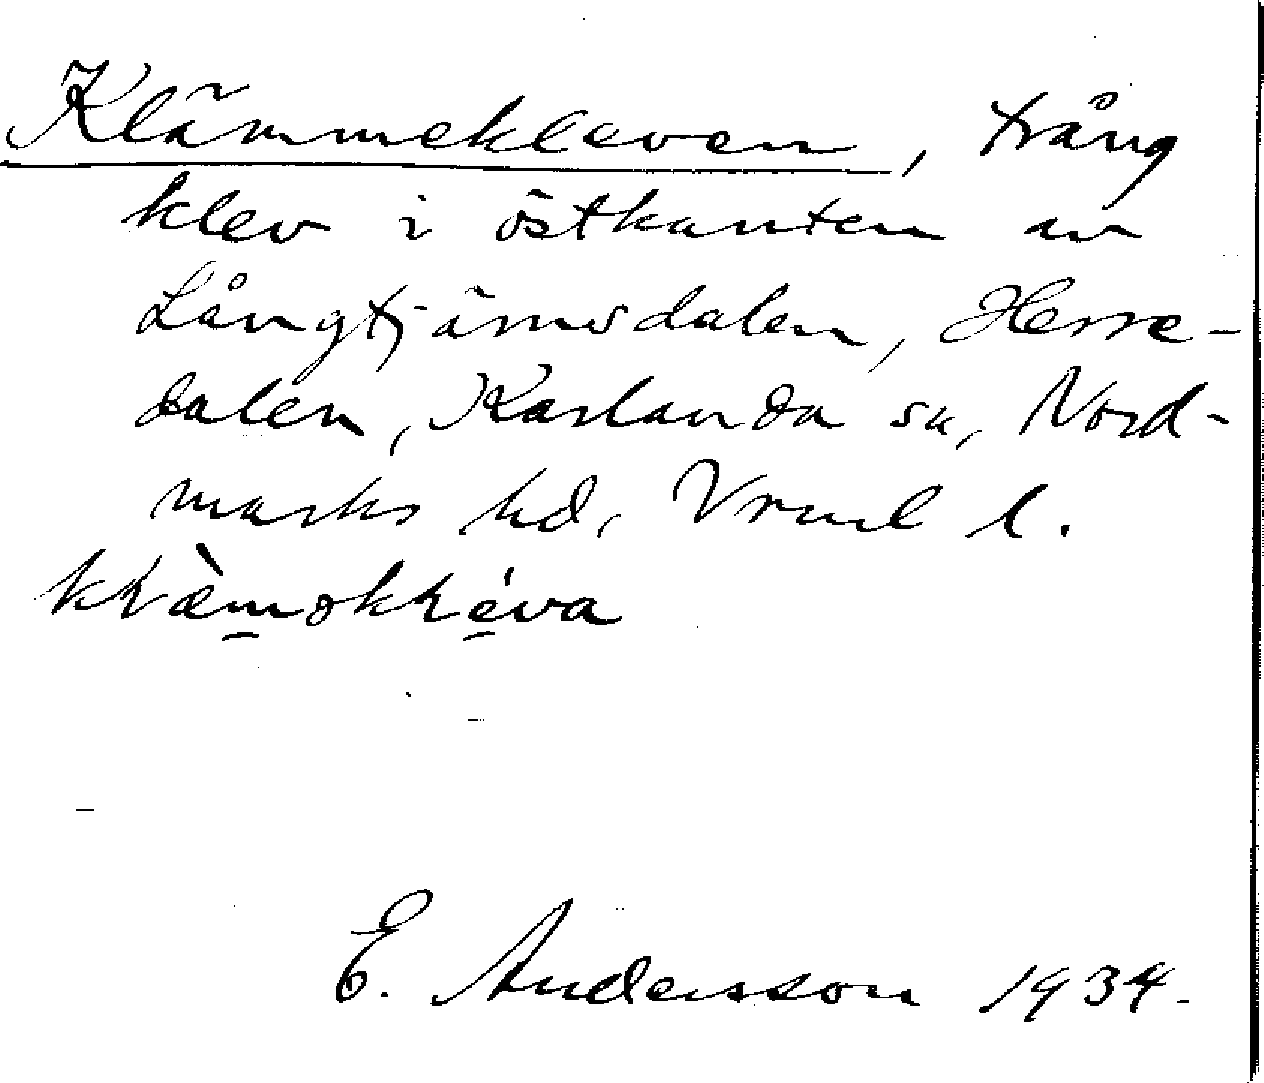 Klämmekleven, trång
klev i östkanten av
Långtjärnsdalen, Herre-
dalen, Karlanda sn, Nord-
marks hd, Vrml l.
E. Andersson 1934.